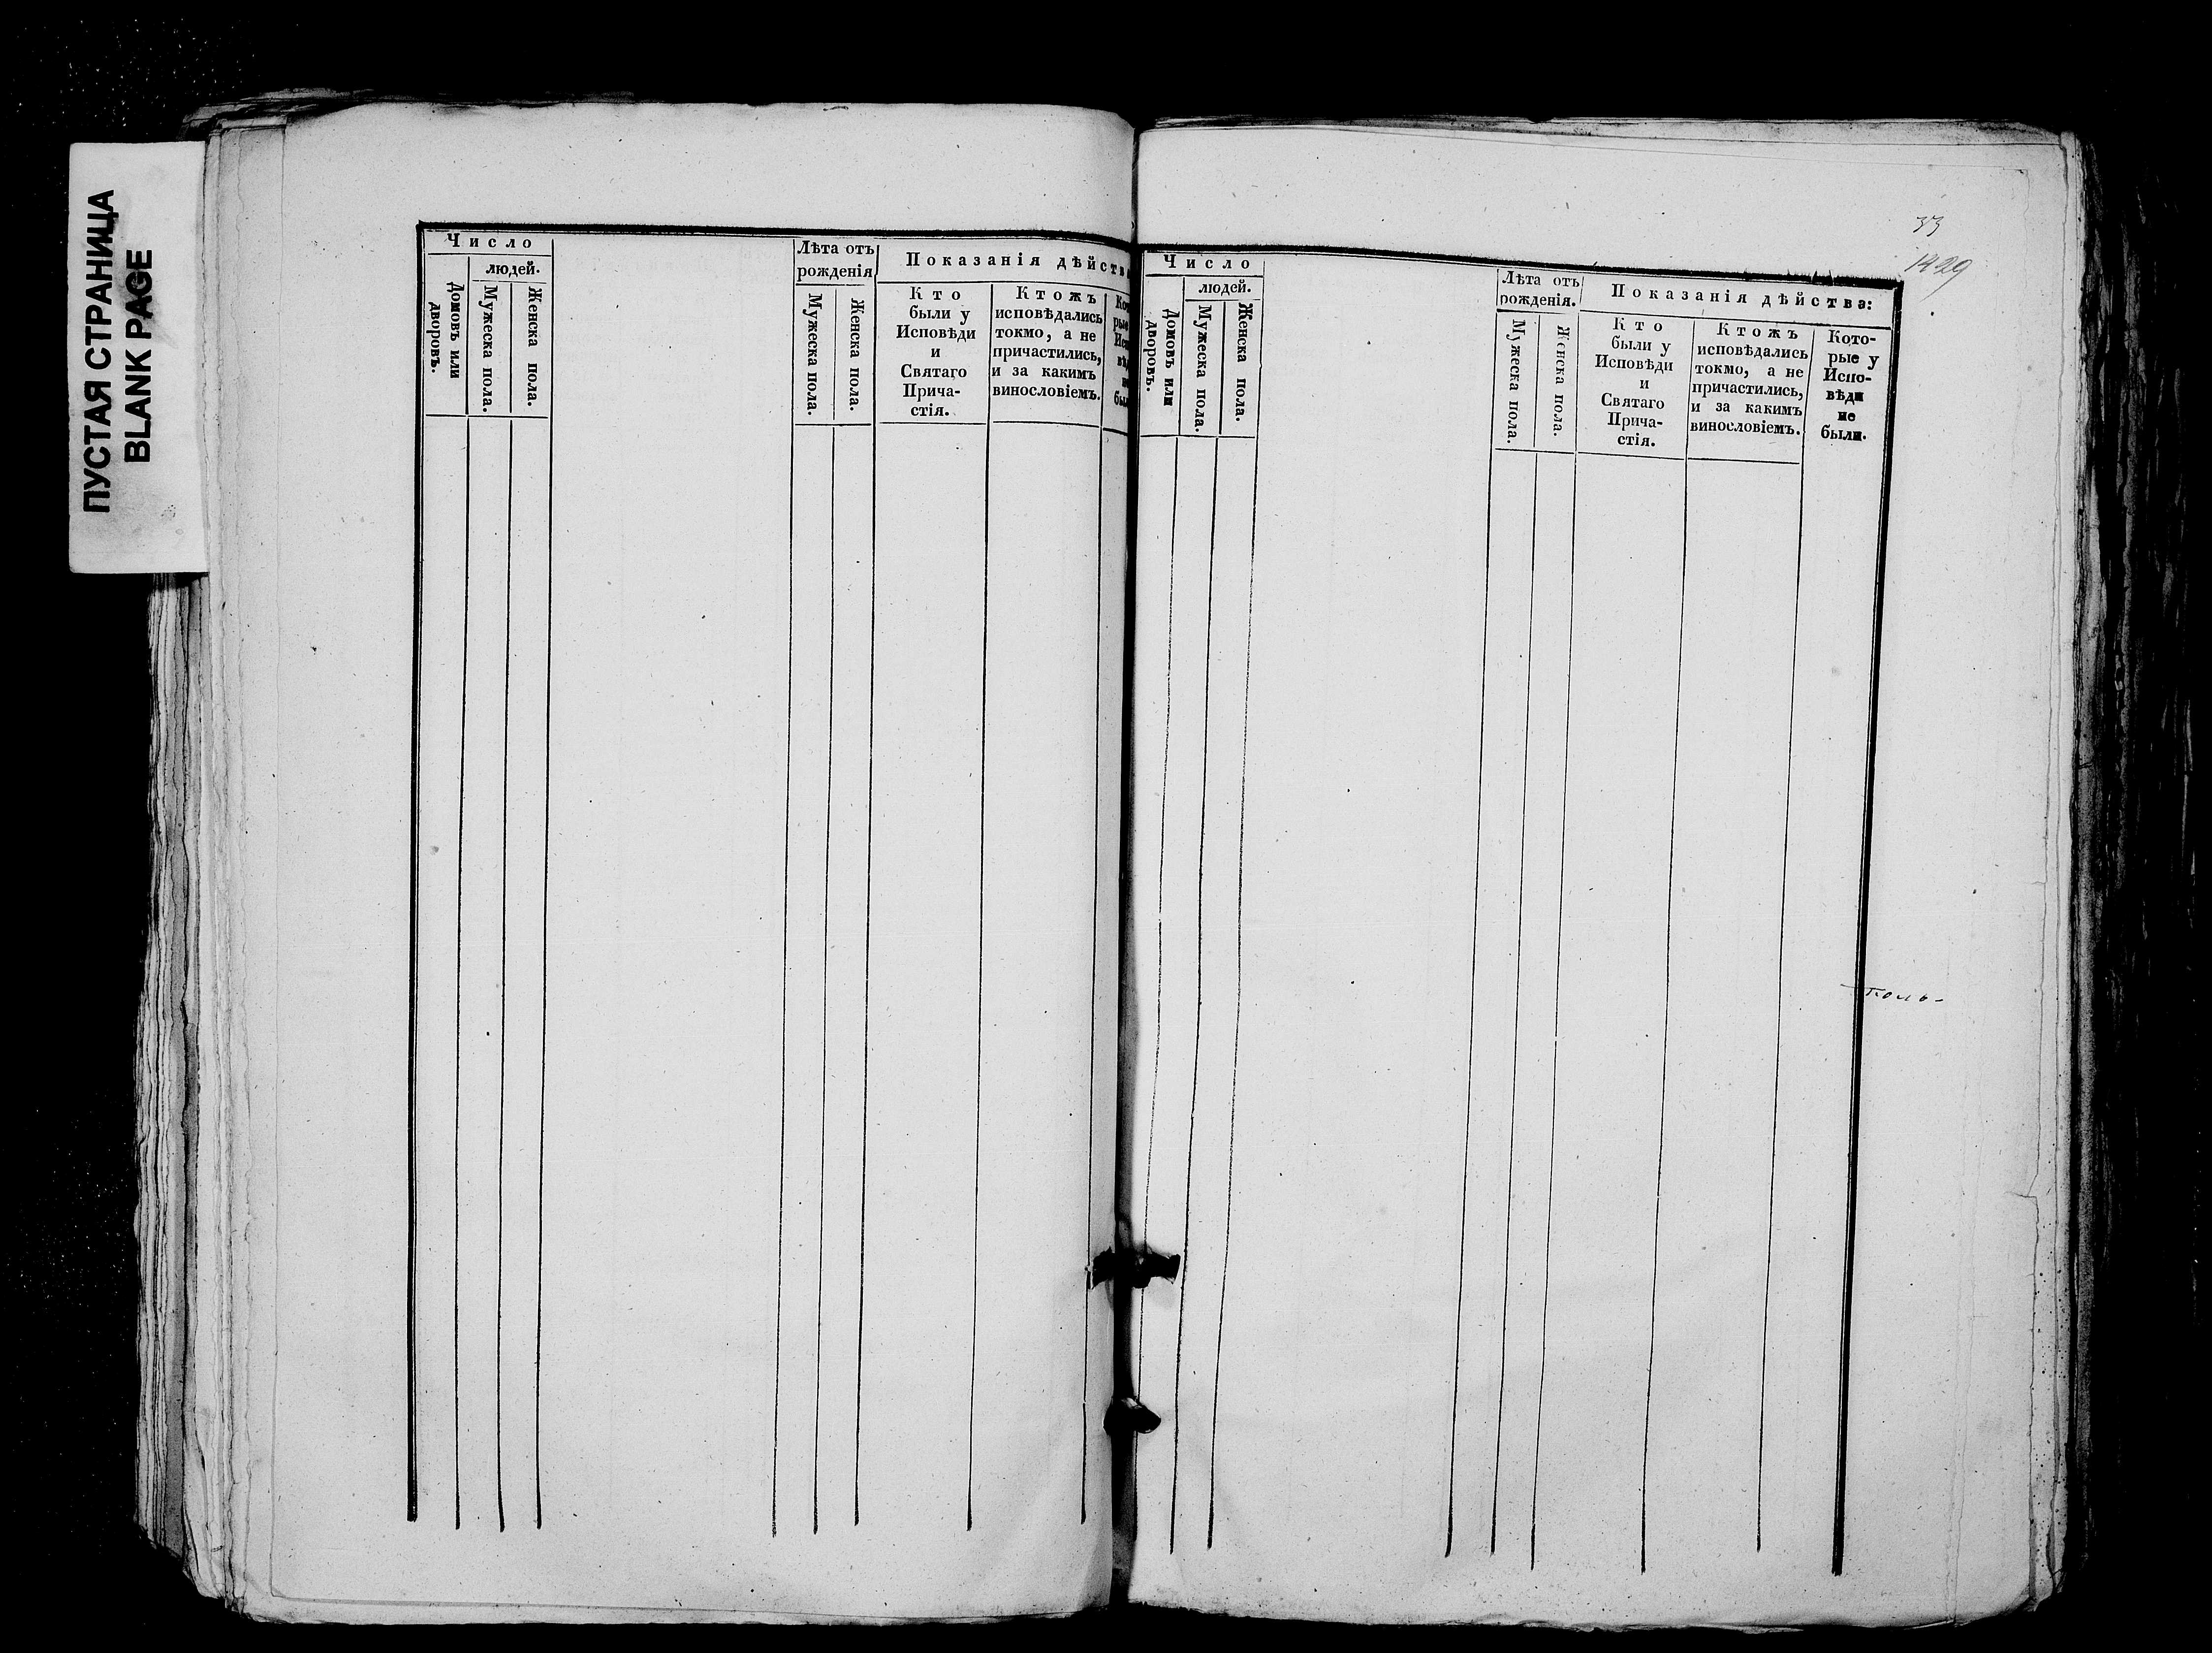 ПУСТАЯ СТРАНИЦА
BLANK PAGE
Число
людей.
Домовъ или
дворовъ.
Мужеска пола.
Женска пола.
Лѣта отъ
рожденія
Мужеска пола.
Женска пола.
Показанія дѣйства
Кто
были у
Исповѣди
и
Святаго
Прича-
стія.
Ктожъ
исповѣдались
токмо, а не
причастились,
и за какимъ
винословіемъ.
33
1429
Число
людей.
Домовъ или
дворовъ.
Мужеска пола.
Женска пола.
Лѣта отъ
рожденія.
Мужеска пола.
Женска пола.
Показанія дѣйства:
Кто
были у
Исповѣди
и
Святаго
Прича-
стія.
Ктожъ
исповѣдались
токмо, а не
причастились,
и за какимъ
винословіемъ.
Кото-
рые у
Испо-
вѣди
не
были.